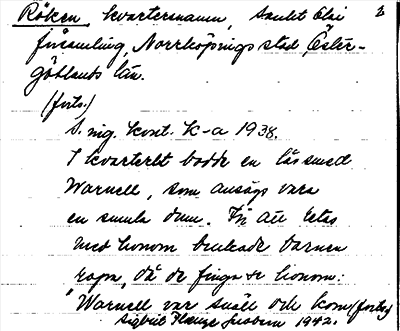 Röken, kvartersnamn, Sankt Olai 2
församling, Norrköpings stad, Öster-
götlands län.
(forts.)
S. ing. kont. K-a 1938.
I kvarteret bodde en låssmed
Warnell, som ansågs vara
en smula dum. För att retas
med honom brukade barnen
ropa, då de fingo se honom:
"Warnell var snäll och kom (forts.)
Sigbrit Plænge Jacobson 1942.